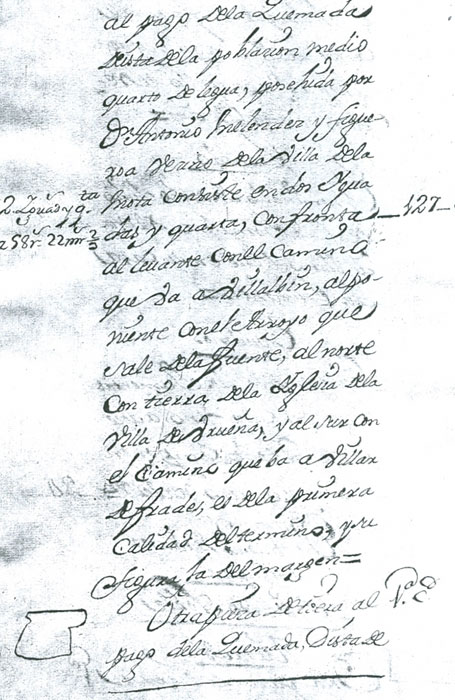 al pago dela Quemada
Dista dela poblazion medio
quarto de legua, posehida por
Dn Antonio Melendez y figue-
roa Vecino dela Villa dela
Mota Consiste en dos Ygua
das y quarta, Confronta
2 Yguads y qta
127
a 58 rs 22 mrs
al levante conel Camino
que va a Villalbin, alpo-
niente conel Arroyo que
sale dela fuente, al norte
Con tierra dela Yglesia dela
Villa de Urueña, y al sur con
el Camino que ba a Villar
defrades, es dela primera
Calidad deltermino, y su
figura la del margen=
Otra pieza de tierra al
pago dela Quemada, Dista de